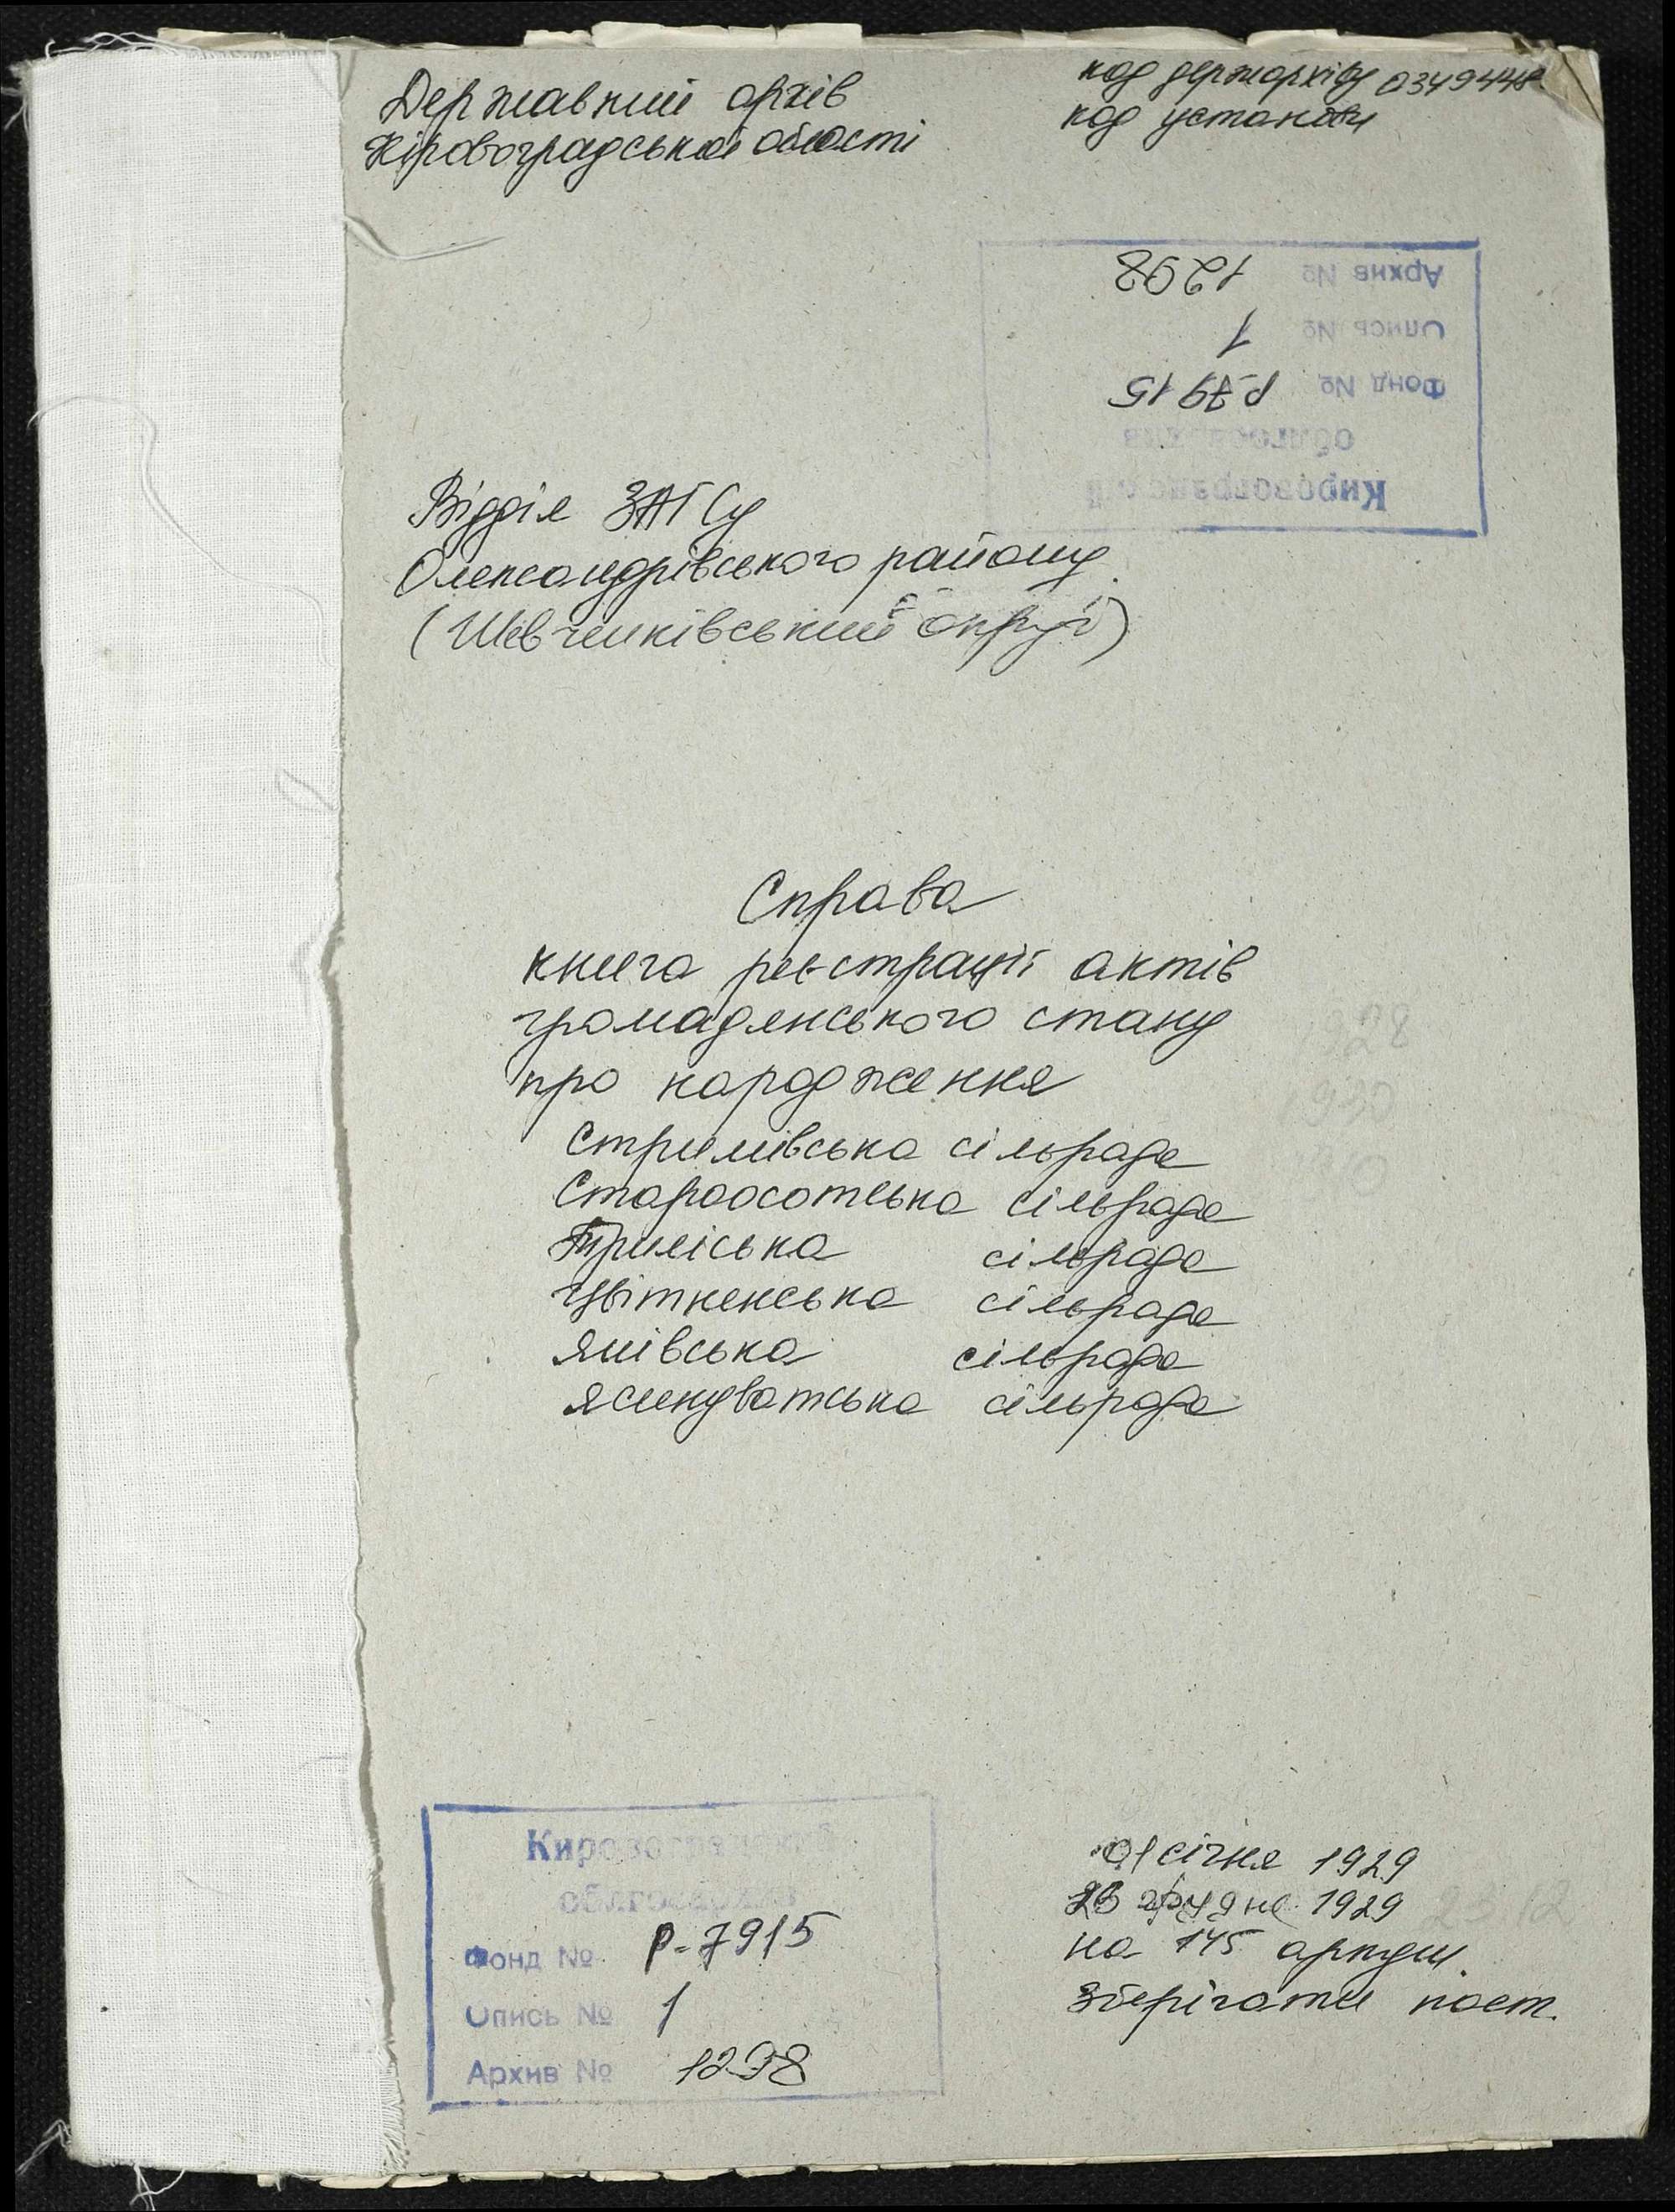 Державний архів
Кіровоградської області
код держархіву 03494481
код установи
Архив № 1298
Опись № 1
Фонд № Р-7915
облгосархив
Кировоградский
Відділ ЗАГСу
Олександрівського району
(Шевченківський округ)
Справа
книга реєстрації актів
громадянського стану
про народження
Стримівська сільрада
Староосотська сільрада
Триліська сільрада
Цвітненська сільрада
Янівська сільрада
Ясинуватська сільрада
1928
1930
Кировоградский
облгосархив
Фонд № Р-7915
Опись № 1
Архив № 1298
01 січня 1929
23 грудня 1929 23 12
на 145 аркуш.
Зберігати пост.